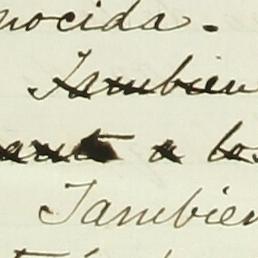 nocida.
Tambien
a los
Tambien